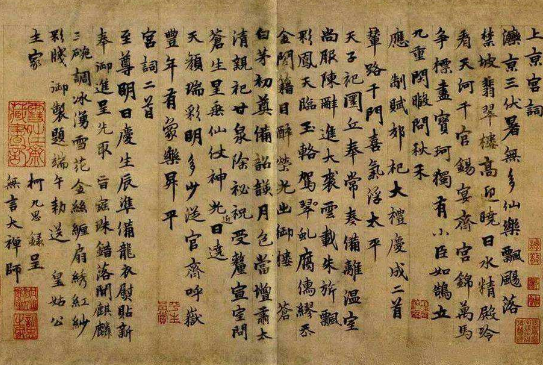 上京宮詞
灤京三伏暑無多仙樂飄颻落
禁坡翡翠樓高迎曉日水精殿冷
看天河千官錫宴齊宮錦萬馬
爭標盡寶珂獨有小臣如鵠立
九重閶闔問秋禾
應制賦郊祀大禮慶成二首
輦路千門喜氣浮太平
天子祀圜丘奉常奏備離溫室
尚服陳斿進大裘雲載朱旂飄
彩鳳天臨玉輅駕翠虬腐儒繆忝
金閨籍日醉榮光出御樓 蒼
白茅初奠備詔談月色當壇肅太
清親祀甘泉除祕祝受釐宣室問
蒼生星垂仙仗神光近日遶
天顏瑞彩明多少從官齊呼嶽
豐年有象樂昇平
宮詞二首
至尊明日慶生辰準備龍衣熨貼新
奉御進呈先取旨寔珠錯落間麒麟
三碗調冰薦雪花金絲纏扇繡紅紗
彩牋御製題端午勅送皇姑公
主家
柯九思錄呈
無言大禪師